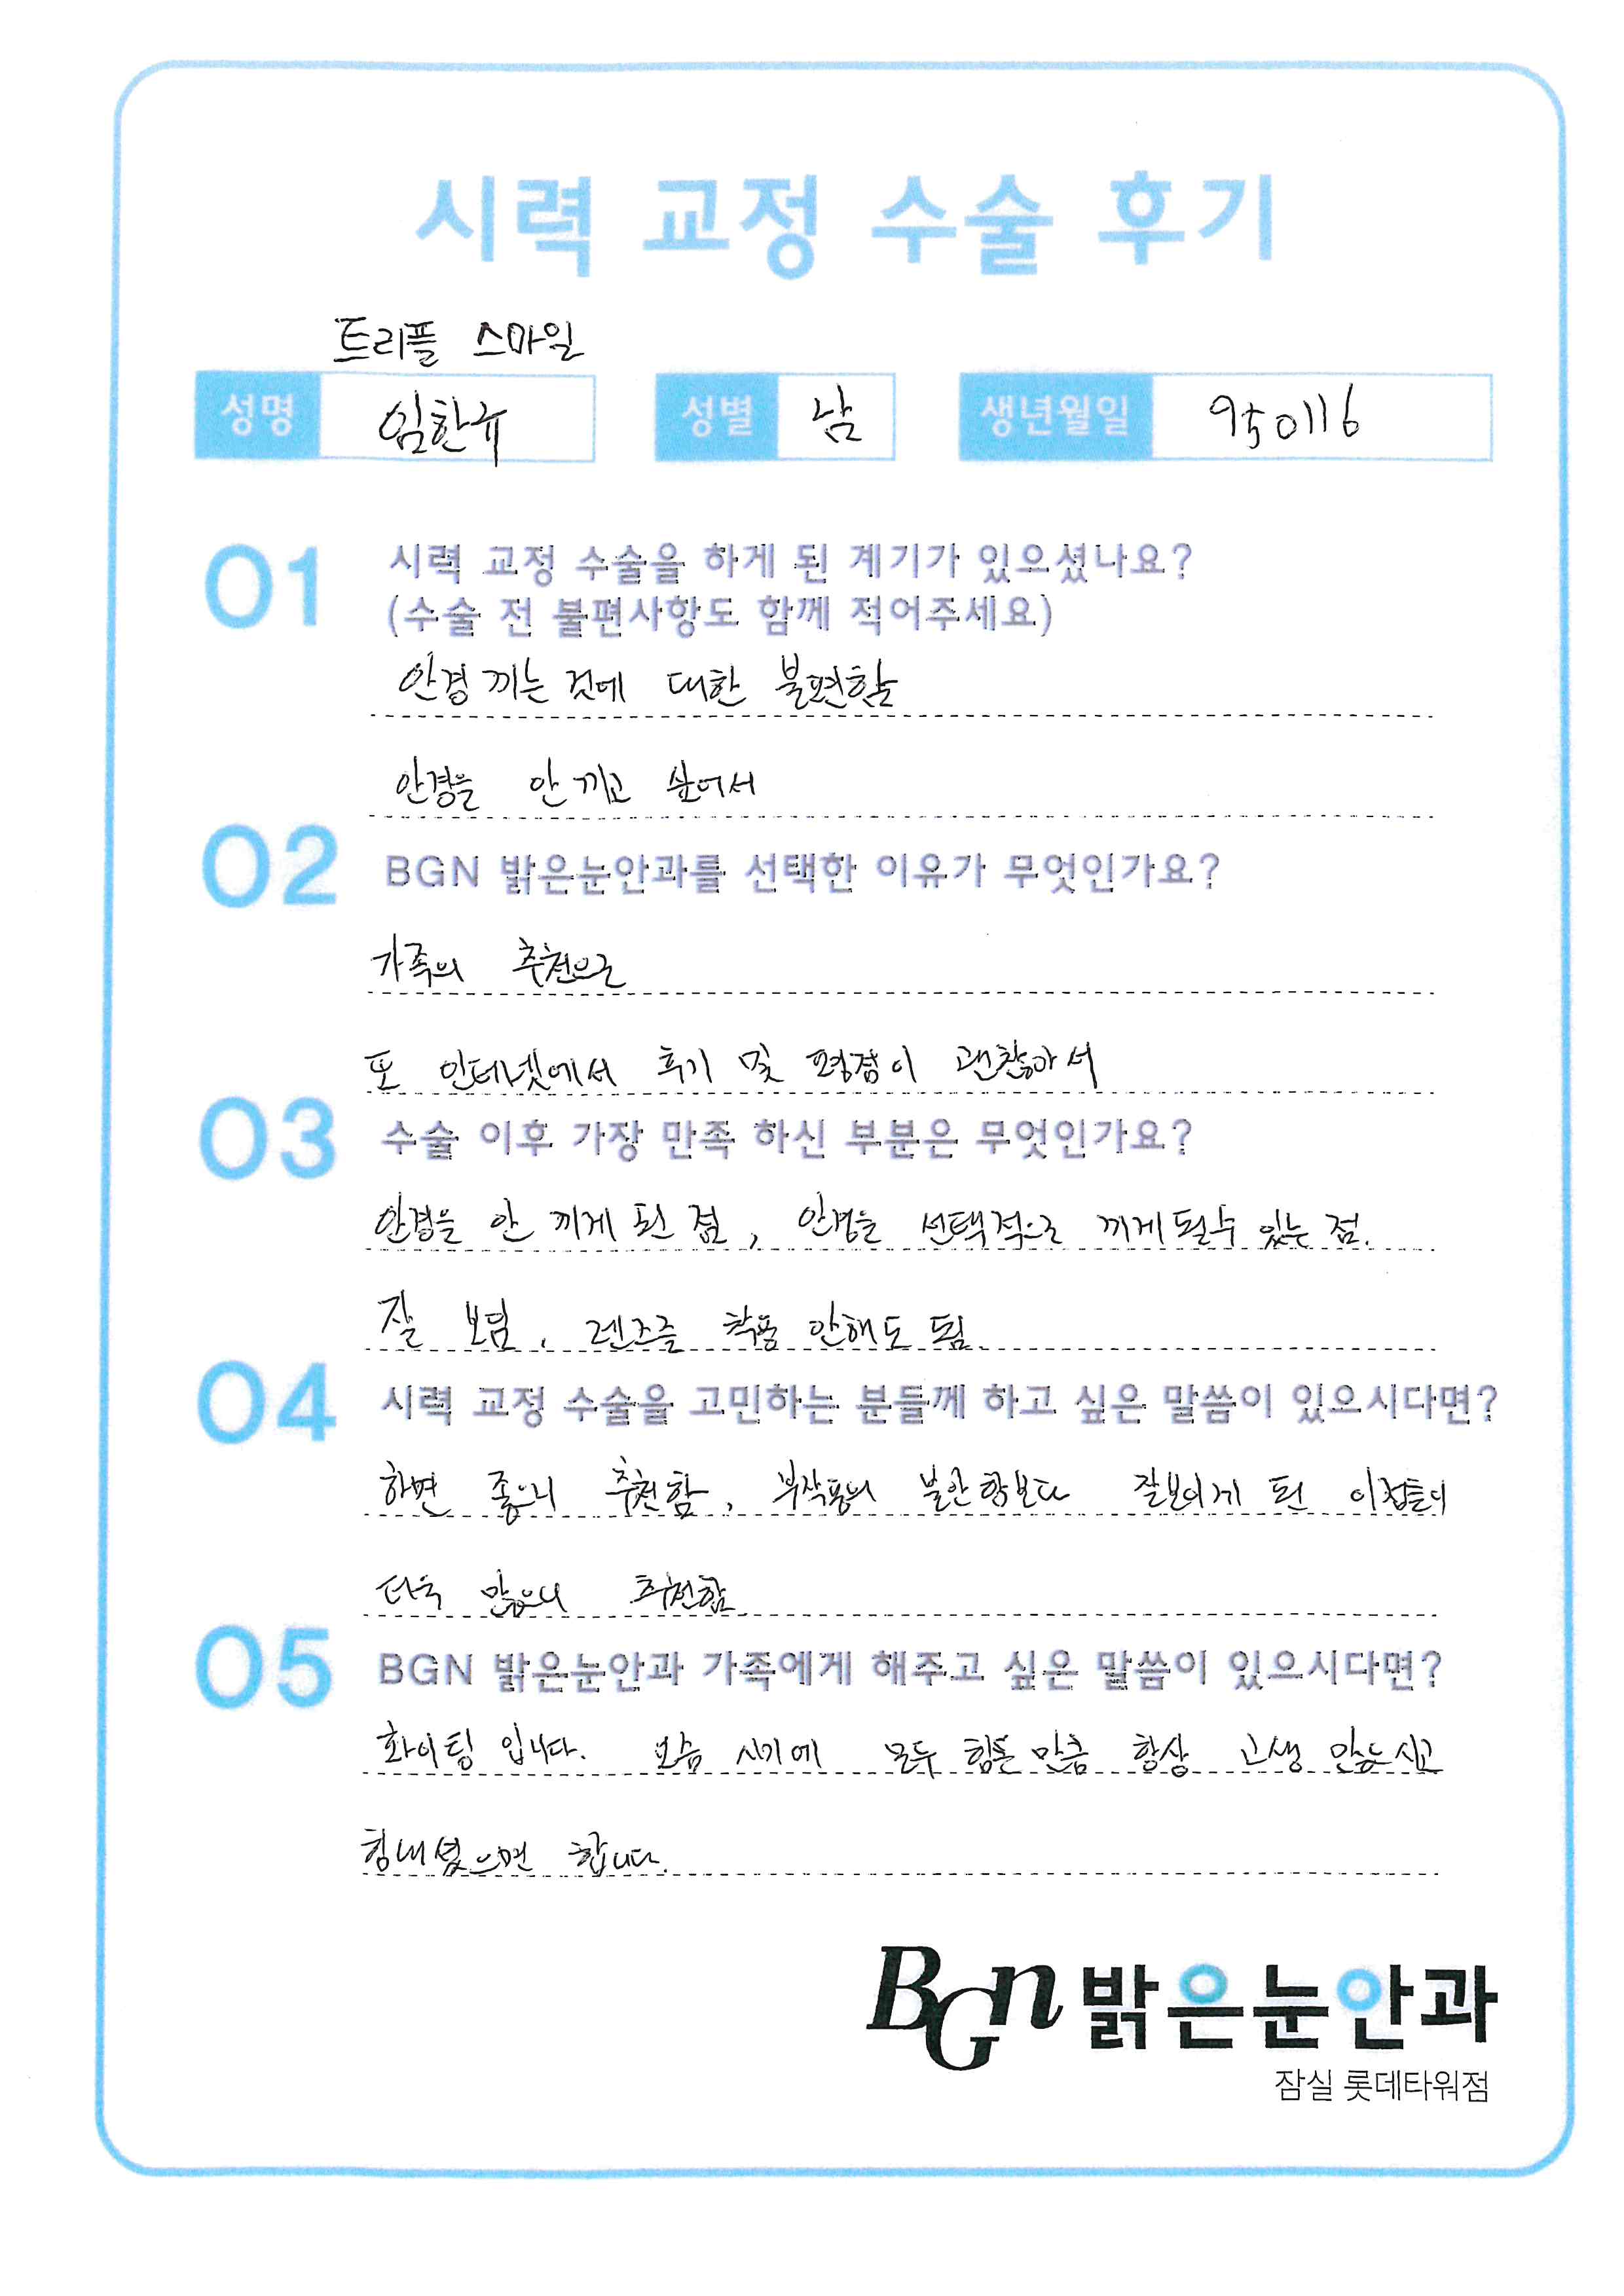 시력 교정 수술 후기
트리플 스마일
성명 임한규 성별 남 생년월일 950116
01 시력 교정 수술을 하게 된 계기가 있으셨나요?
(수술 전 불편사항도 함께 적어주세요)
안경 끼는 것에 대한 불편함
안경을 안 끼고 싶어서
02 BGN 밝은눈안과를 선택한 이유가 무엇인가요?
가족의 추천으로
또 인터넷에서 후기 및 평점이 괜찮아서
03 수술 이후 가장 만족 하신 부분은 무엇인가요?
안경을 안 끼게 된 점, 안경을 선택적으로 끼게 될 수 있는 점.
잘 보임, 렌즈를 착용 안해도 됨.
04 시력 교정 수술을 고민하는 분들께 하고 싶은 말씀이 있으시다면?
하면 좋으니 추천함, 부작용의 불안함보다 잘보이게 된 이점들이
더욱 많으니 추천함
05 BGN 밝은눈안과 가족에게 해주고 싶은 말씀이 있으시다면?
화이팅 입니다. 요즘 시기에 모두 힘든 만큼 항상 고생 많으시고
힘내셨으면 합니다.
BGn 밝은눈안과
잠실 롯데타워점